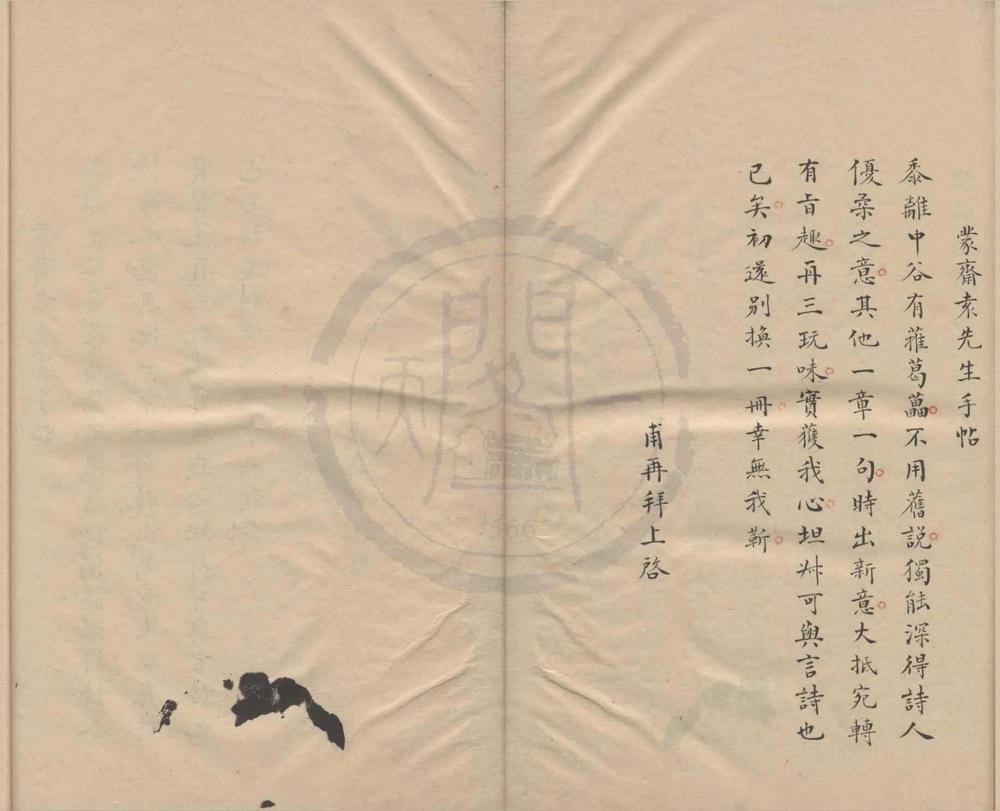 蒙齋袁先生手帖
黍離中谷有蓷葛藟不用舊說獨能深得詩人
優柔之意其他一章一句時出新意大抵宛轉
有旨趣再三玩味實獲我心坦叔可與言詩也
已矣初還別換一冊幸無我靳
甫再拜上啓